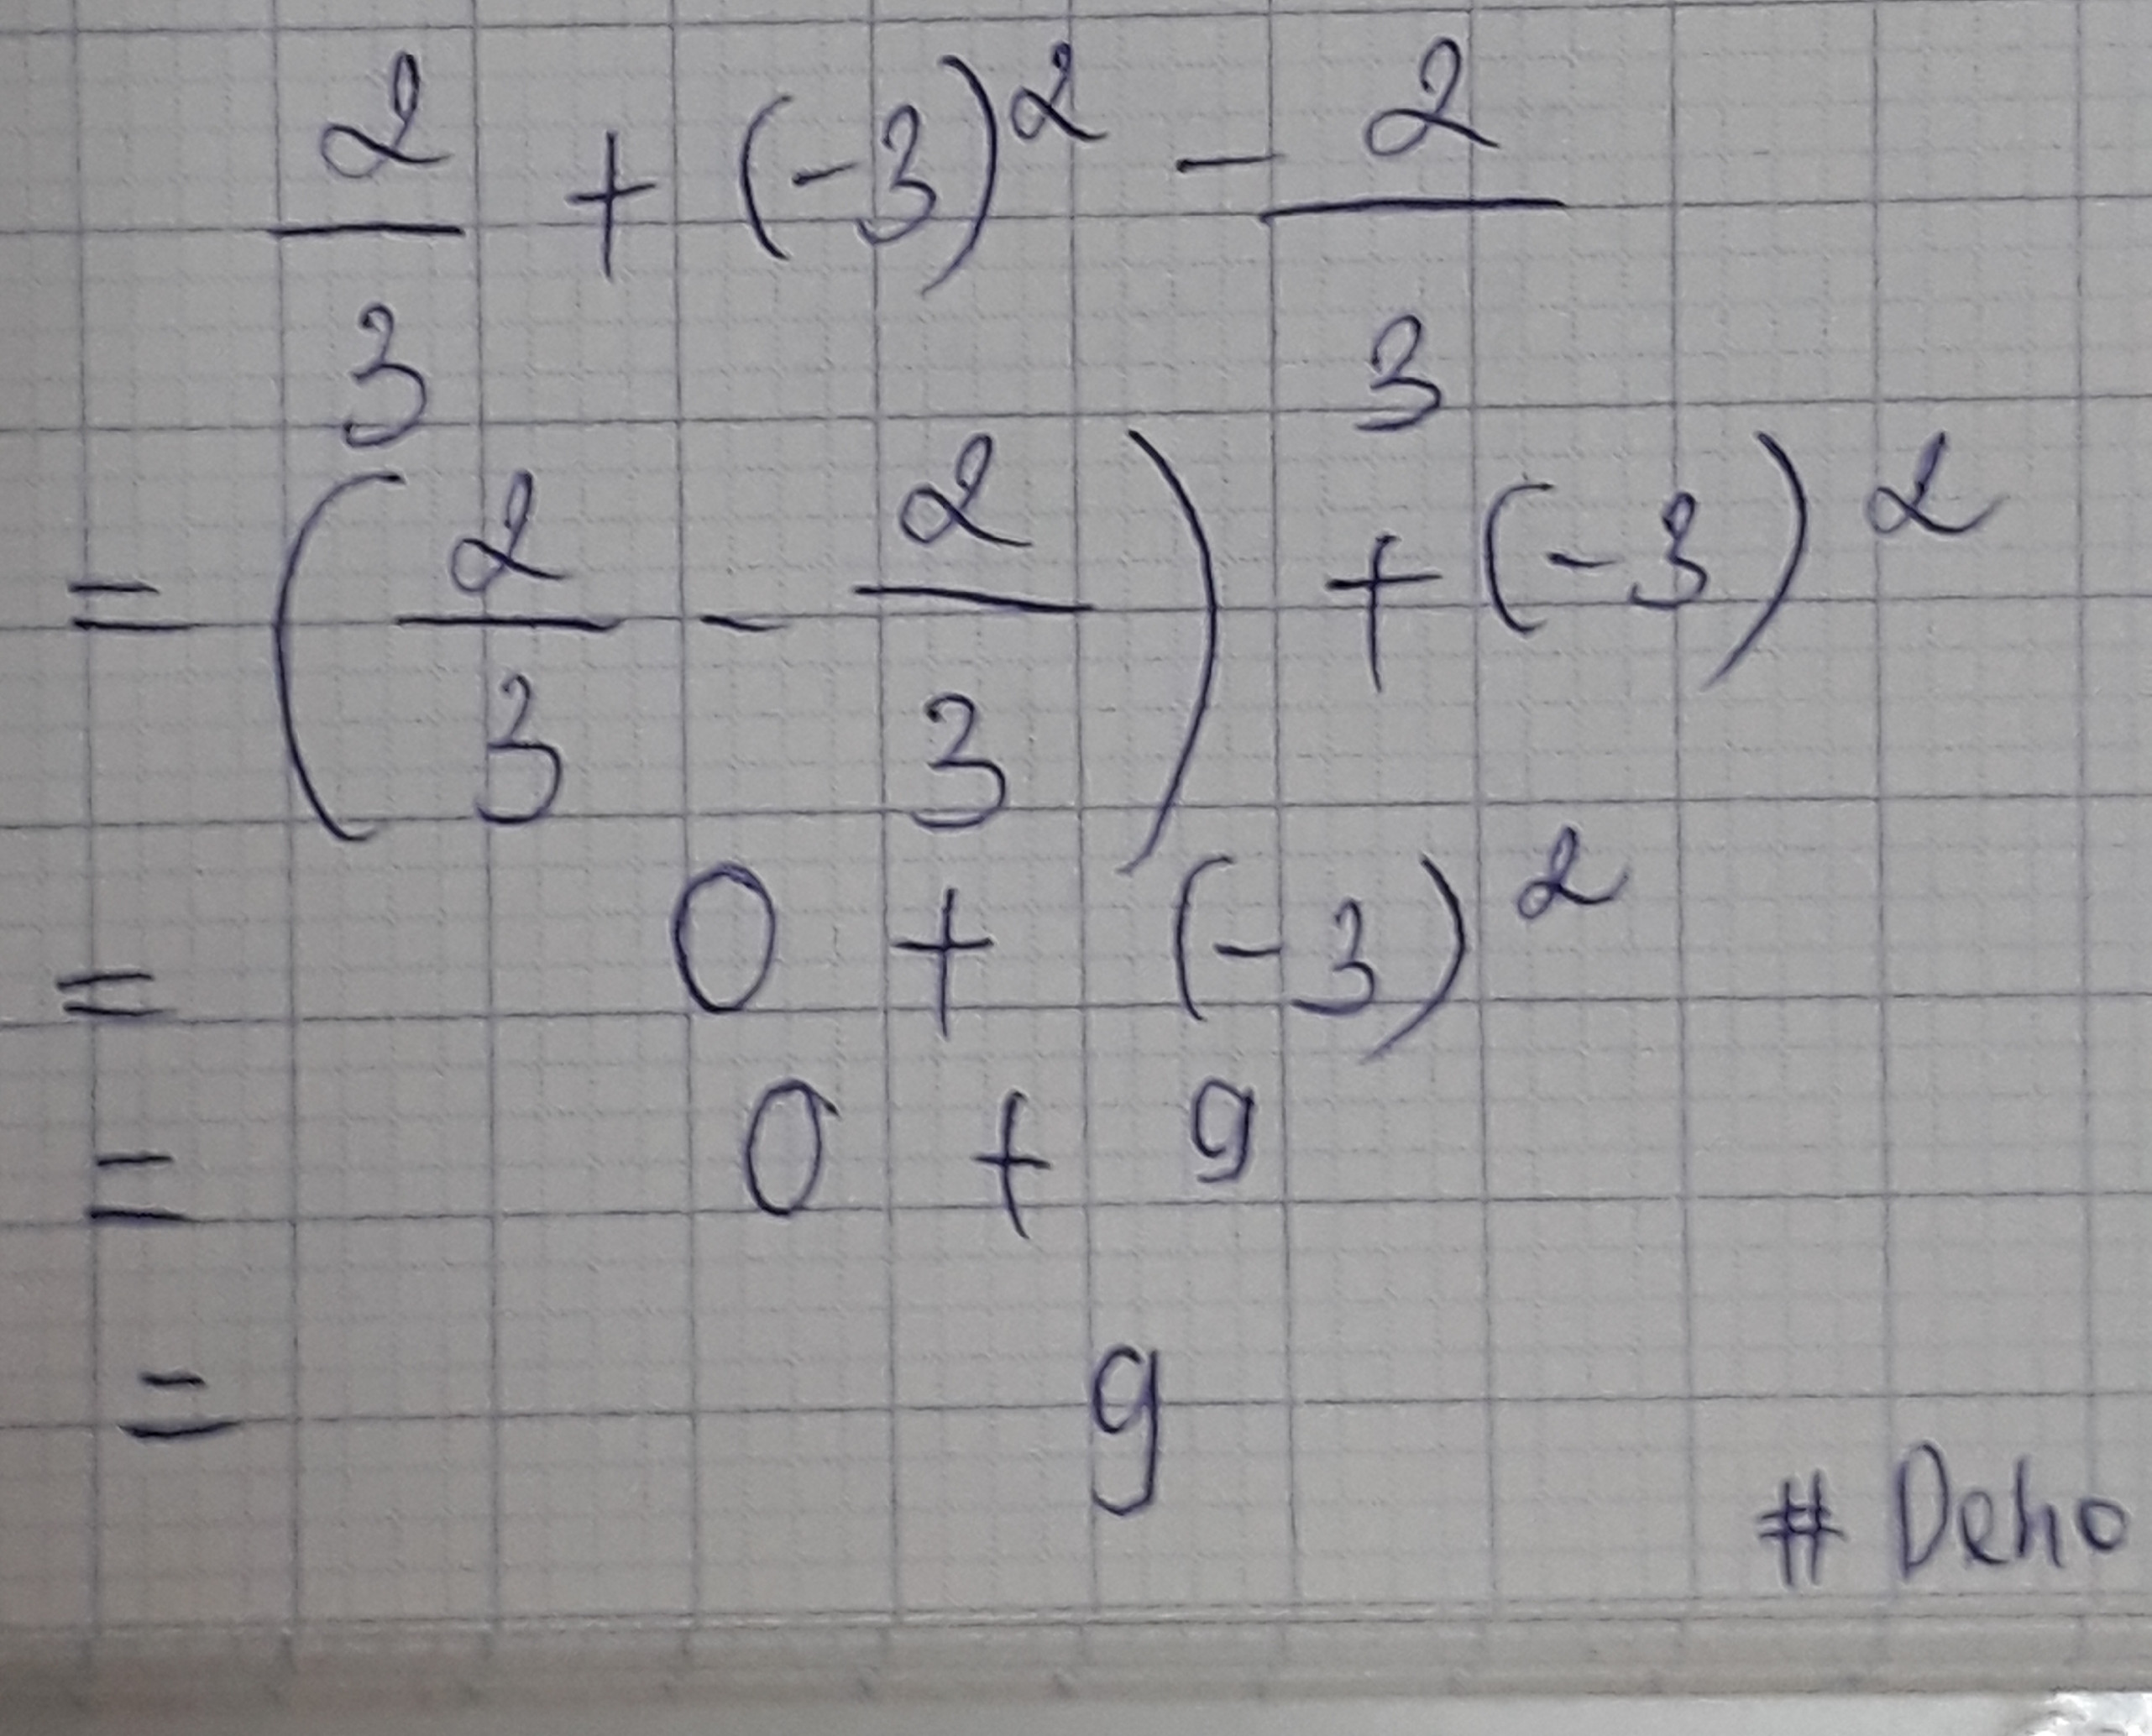 2/3 + (-3)² - 2/3
= (2/3 - 2/3) + (-3)²
= 0 + (-3)²
= 0 + 9
= 9
# Deho